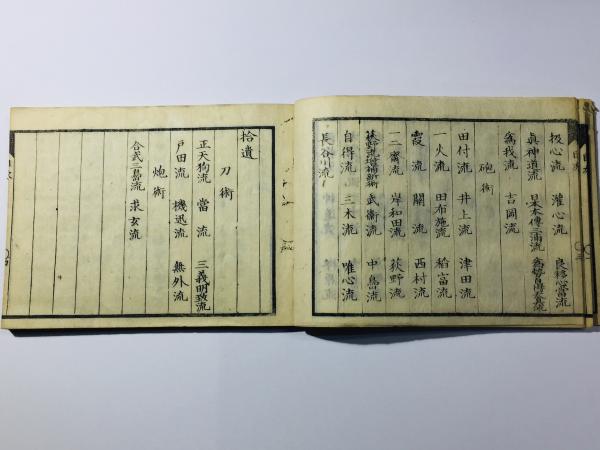 扱心流 灌心流 良移心當流
眞神道流 日本傳三浦流
爲我流 吉岡流
砲術
田付流 井上流 津田流
一火流 田布施流 稻富流
霞流 關流 西村流
一二齋流 岸和田流 荻野流
武衞流 中島流
自得流 三木流 唯心流
長谷川流
拾遺
刀術
正天狗流 當流 三義明致流
戸田流 機迅流 無外流
炮術
合武三島流 求玄流